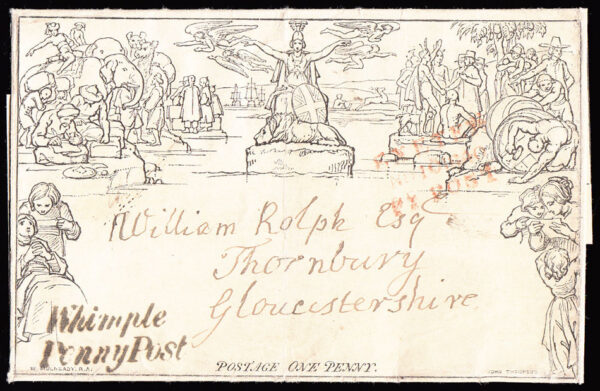 William Rolph Esq
Thornbury
Gloucestershire
Whimple
Penny Post
POSTAGE ONE PENNY.
W. MULREADY, R.A.
JOHN THOMPSON